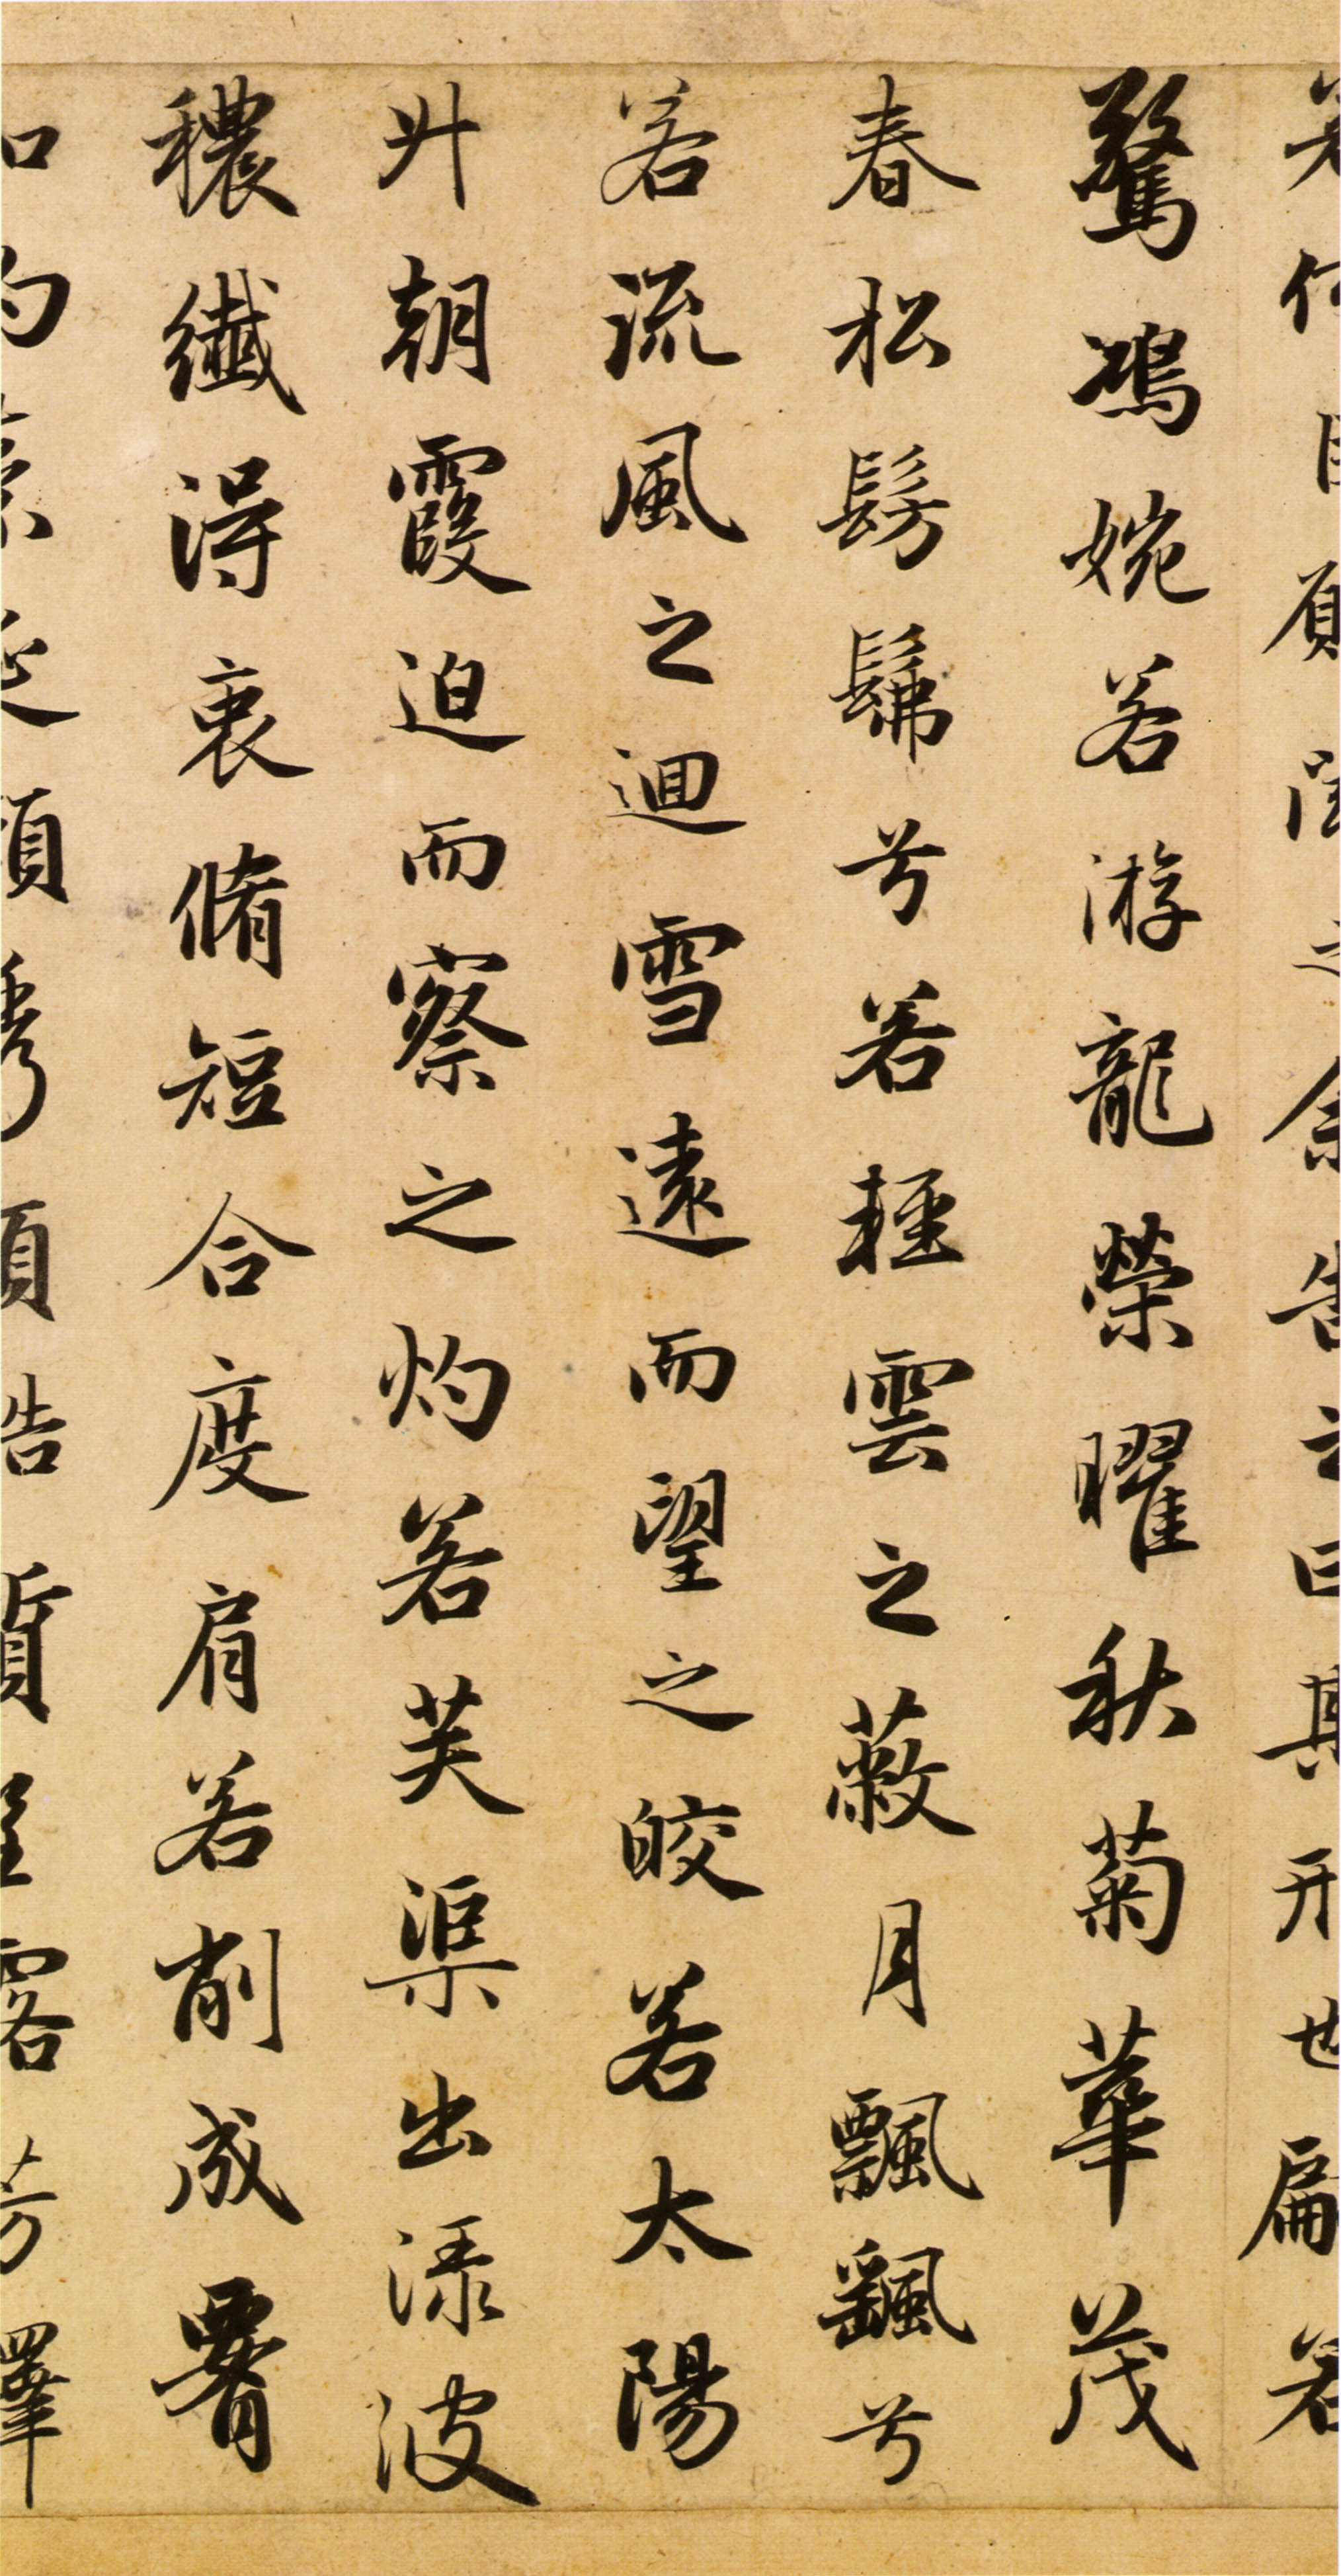 若何臣願聞之余告之曰其形也翩若
驚鴻婉若游龍榮曜秋菊華茂
春松髣髴兮若輕雲之蔽月飄颻兮
若流風之迴雪遠而望之皎若太陽
升朝霞迫而察之灼若芙渠出淥波
穠纖得衷脩短合度肩若削成腰
如約素延頸秀項皓質呈露芳澤